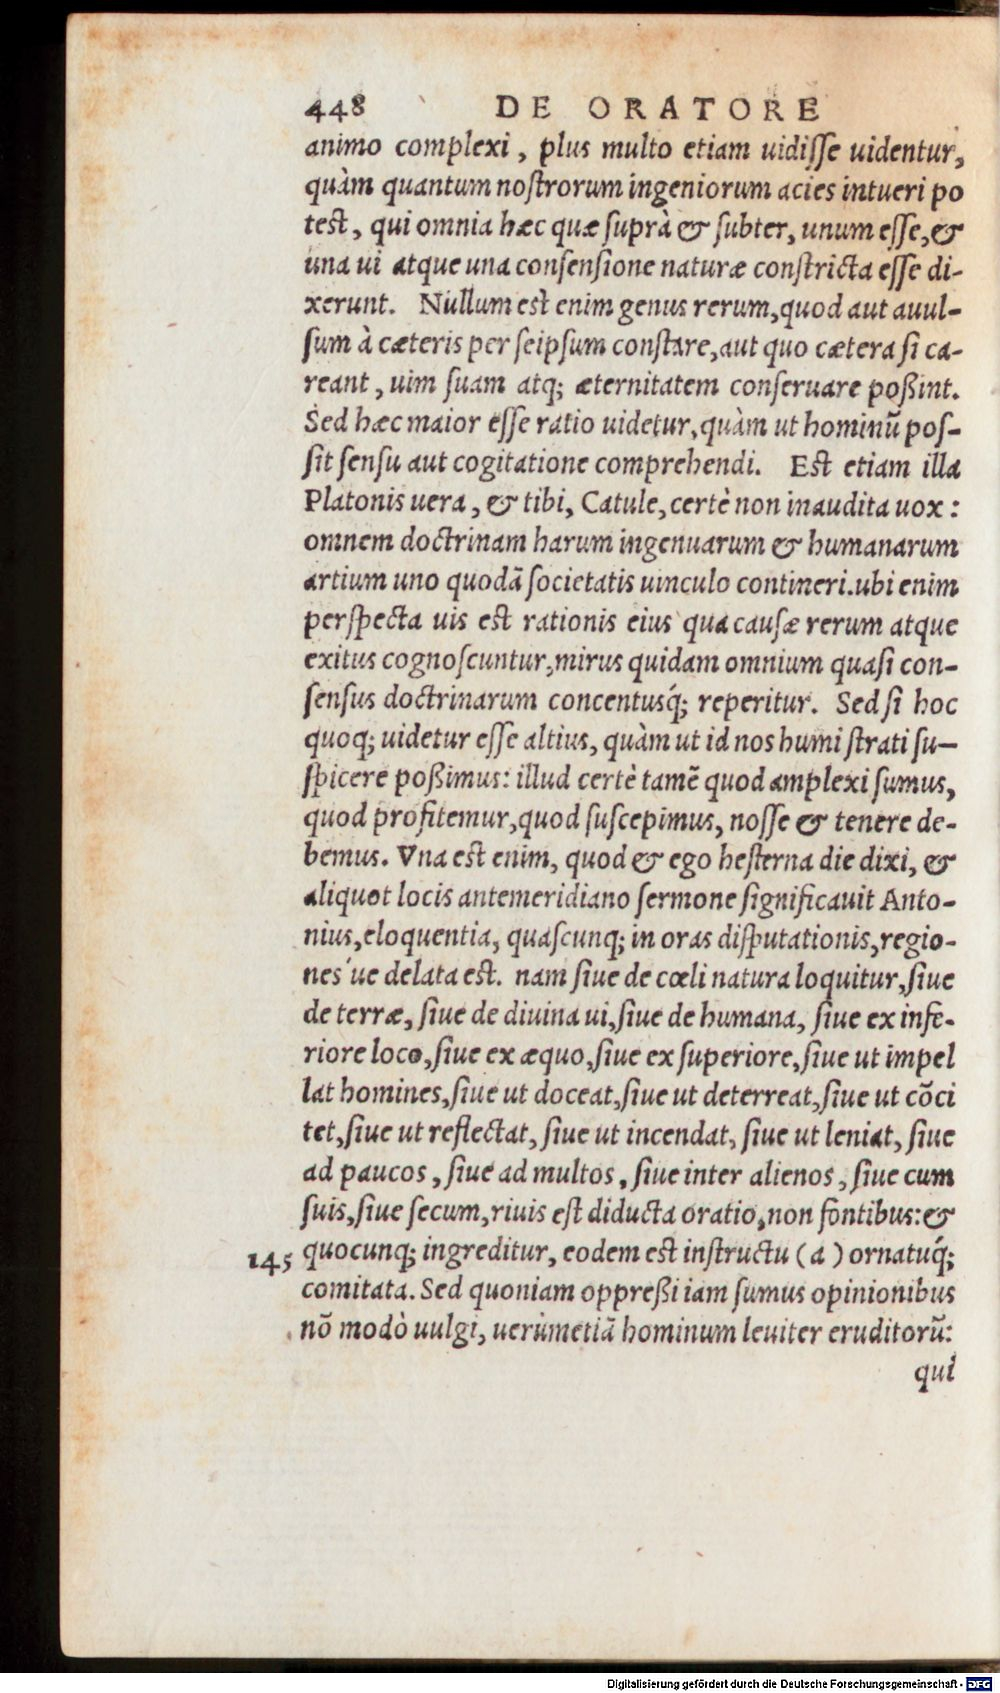 448 DE ORATORE
animo complexi, plus multo etiam uidiſſe uidentur,
quàm quantum noſtrorum ingeniorum acies intueri po
test, qui omnia hæc quæ ſuprà & ſubter, unum eſſe, &
una ui atque una conſenſione naturæ conſtricta eſſe di-
xerunt. Nullum est enim genus rerum, quod aut auul-
ſum à cæteris per ſeipſum conſtare, aut quo cætera ſi ca-
reant, uim ſuam atq; æternitatem conſeruare poßint.
Sed hæc maior eſſe ratio uidetur, quàm ut hominũ poſ-
ſit ſenſu aut cogitatione comprehendi. Est etiam illa
Platonis uera, & tibi, Catule, certè non inaudita uox:
omnem doctrinam harum ingenuarum & humanarum
artium uno quodã ſocietatis uinculo contineri. ubi enim
perſpecta uis est rationis eius qua cauſæ rerum atque
exitus cognoſcuntur, mirus quidam omnium quaſi con-
ſenſus doctrinarum concentusq́; reperitur. Sed ſi hoc
quoq; uidetur eſſe altius, quàm ut id nos humi ſtrati ſu-
ſpicere poßimus: illud certè tamẽ quod amplexi ſumus,
quod profitemur, quod ſuſcepimus, noſſe & tenere de-
bemus. Vna est enim, quod & ego heſterna die dixi, &
aliquot locis antemeridiano ſermone ſignificauit Anto-
nius, eloquentia, quaſcunq; in oras diſputationis, regio-
nes´ue delata est. nam ſiue de cœli natura loquitur, ſiue
de terræ, ſiue de diuina ui, ſiue de humana, ſiue ex infe-
riore loco, ſiue ex æquo, ſiue ex ſuperiore, ſiue ut impel
lat homines, ſiue ut doceat, ſiue ut deterreat, ſiue ut cõci
tet, ſiue ut reflectat, ſiue ut incendat, ſiue ut leniat, ſiue
ad paucos, ſiue ad multos, ſiue inter alienos, ſiue cum
ſuis, ſiue ſecum, riuis est diducta oratio, non fontibus: &
145 quocunq; ingreditur, eodem est inſtructu (a) ornatuq́;
comitata. Sed quoniam oppreßi iam ſumus opinionibus
nõ modò uulgi, uerùmetiã hominum leuiter eruditorũ:
qui
Digitalisierung gefördert durch die Deutsche Forschungsgemeinschaft - DFG